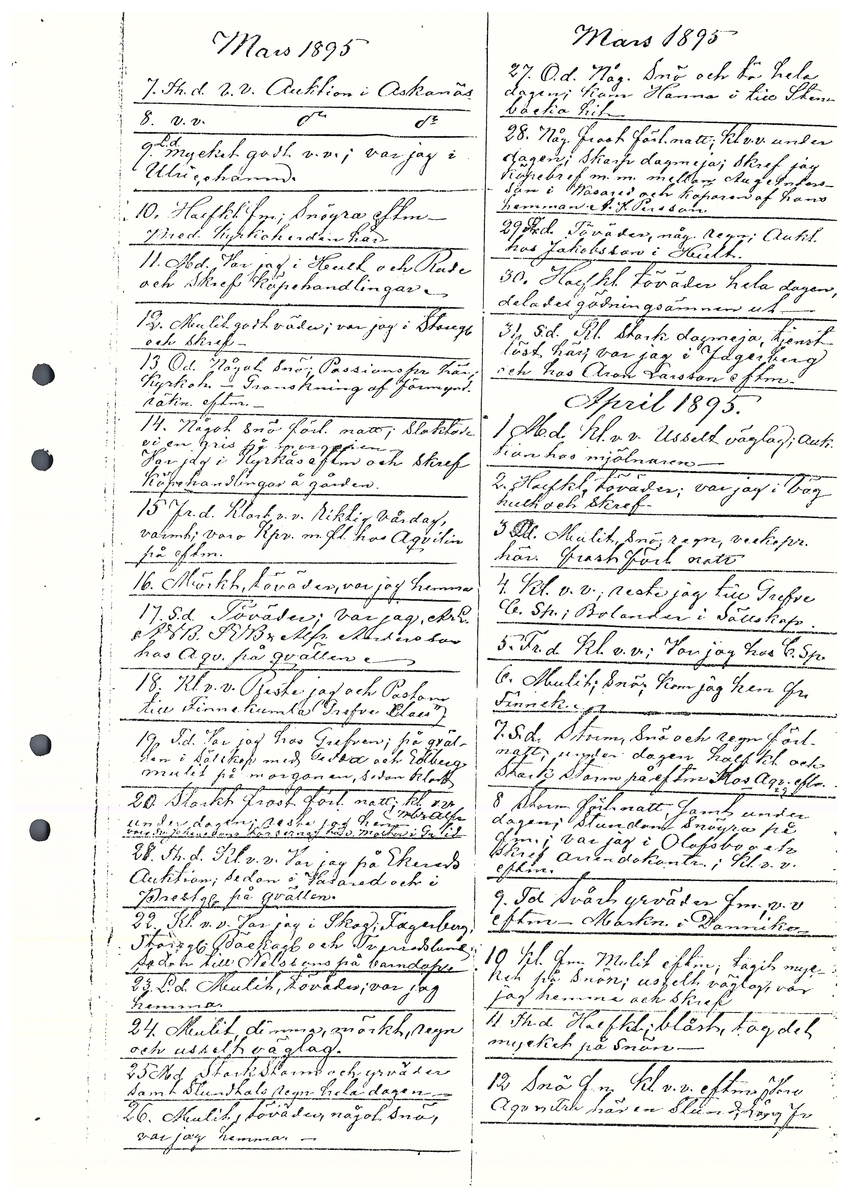 Mars 1895
7. Th.d. v.v. Auktion i Askanäs
8. v.v. d:o d:o
9. L.d mycket godt v.v.; var jag i
Ulricehamn.
10. Halfkl. fm; Snöyra eftm –
Pred. Kyrkoherden här
11. Md. Var jag i Hult och Rude
och skref köpehandlingar
12. Mulit godt väder; var jag i Storegb
och skref –
13 Od. Något Snö; Passionspr här;
Kyrkoh. – Granskning af förmynd.
räkn. eftm. –
14. Något snö förl. natt; slaktade
vi en gris på morgonen
Var jag i Kyrkås eftm och skref
köpehandlingar å gården.
15 Fr.d. Klart, v.v. Riktig vårdag,
varmt; voro Kpv. m.fl. hos Aqvilin
på eftm.
16. Mörkt, töväder, var jag hemma
17. S.d Töväder; var jag,
Alfr. Andersson
hos Aqv. på qvällen
18. Kl. v.v. Reste jag och Pastorn
till Finnekumla (Grefve Claes)
19. T.d. Var jag hos Grefven; på qväl-
len i sällskap med och Edberg
mulit på morgonen, sedan klart
20. Starkt frost förl. natt; kl. v.v.
under dagen; reste jag hem
21. Th.d. Kl. v.v. Var jag på Ekereds
Auktion; sedan i Vasared och i
Prestgb på qvällen.
22. Kl. v.v. Var jag i Skog, Fagerberg,
Storegb, Backagb och
sedan till Nilssons på barndop
23. L.d Mulit, töväder; var jag
hemma
24. Mulit dimma, mörkt, regn
och usselt väglag.
25 Md Stark Storm och yrväder
samt stundtals regn hela dagen –
26. Mulit, töväder, något Snö,
var jag hemma –
Mars 1895
27. O.d. Någ. Snö och tö hela
dagen; kom Hanna i till Sten
backa hit –
28. Någ. frost förl. natt; kl. v.v under
dagen; skarp dagmeja; skref jag
köpebref m.m. mellan Aug. Anders-
son i Vasared och köparen af hans
hemman A. K. Persson.
29 Fr.d. Töväder, någ. regn; Aukt.
hos Jakobsson i Hult.
30. Halfkl. töväder hela dagen,
delades gödningsämnen ut –
31. S.d. Kl. Stark dagmeja, tjenst-
löst här; var jag i Fagerberg
och hos Aron Larsson eftm.
April 1895.
1 Md. Kl. v.v. Usselt väglag; Auk-
tion hos mjölnaren –
2. Halfkl. töväder; var jag i Väg
hult och skref
3 Od. Mulit, Snö, regn, veckopr.
här. frost förl. natt
4. Kl. v.v.; reste jag till Grefve
C. Sp.; Bolander i sällskap.
5. Fr.d Kl. v.v; Var jag hos C. Sp
6. Mulit; Snö; kom jag hem fr
Finnek.
7. S.d. Storm, Snö och regn förl.
natt; under dagen halfkl. och
stark storm på eftm. Hos Aqv. eftm.
8 Storm förl. natt, jemt under
dagen; stundom Snöyra på
fm.; var jag i Olofsbo och
skref arrendekontr.; kl. v.v.
eftm.
9. Td Svårt yrväder fm. v.v
eftm – Markn. i Dannike
10 Kl. fm. Mulit eftm; tagit myc-
ket på Snön; usselt väglag, var
jag hemma och skref
11 Th.d Halfkl; blåst, tog det
mycket på Snön –
12 Snö fm. kl. v.v. eftm. Voro
här en stund